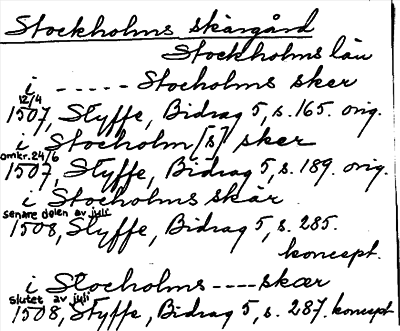 Stockholms skärgård
Stockholms län
i ----- Stocholms sker
12/4
1507, Styffe, Bidrag 5, s. 165. orig.
i Stocholm[s] sker
omkr. 24/6
1507, Styffe, Bidrag 5, s. 189. orig.
i Stocholms skär
senare delen av juli
1508, Styffe, Bidrag 5, s. 285.
koncept.
i Stocholms ---- skær
slutet av juli
1508, Styffe, Bidrag 5, s. 287. koncept